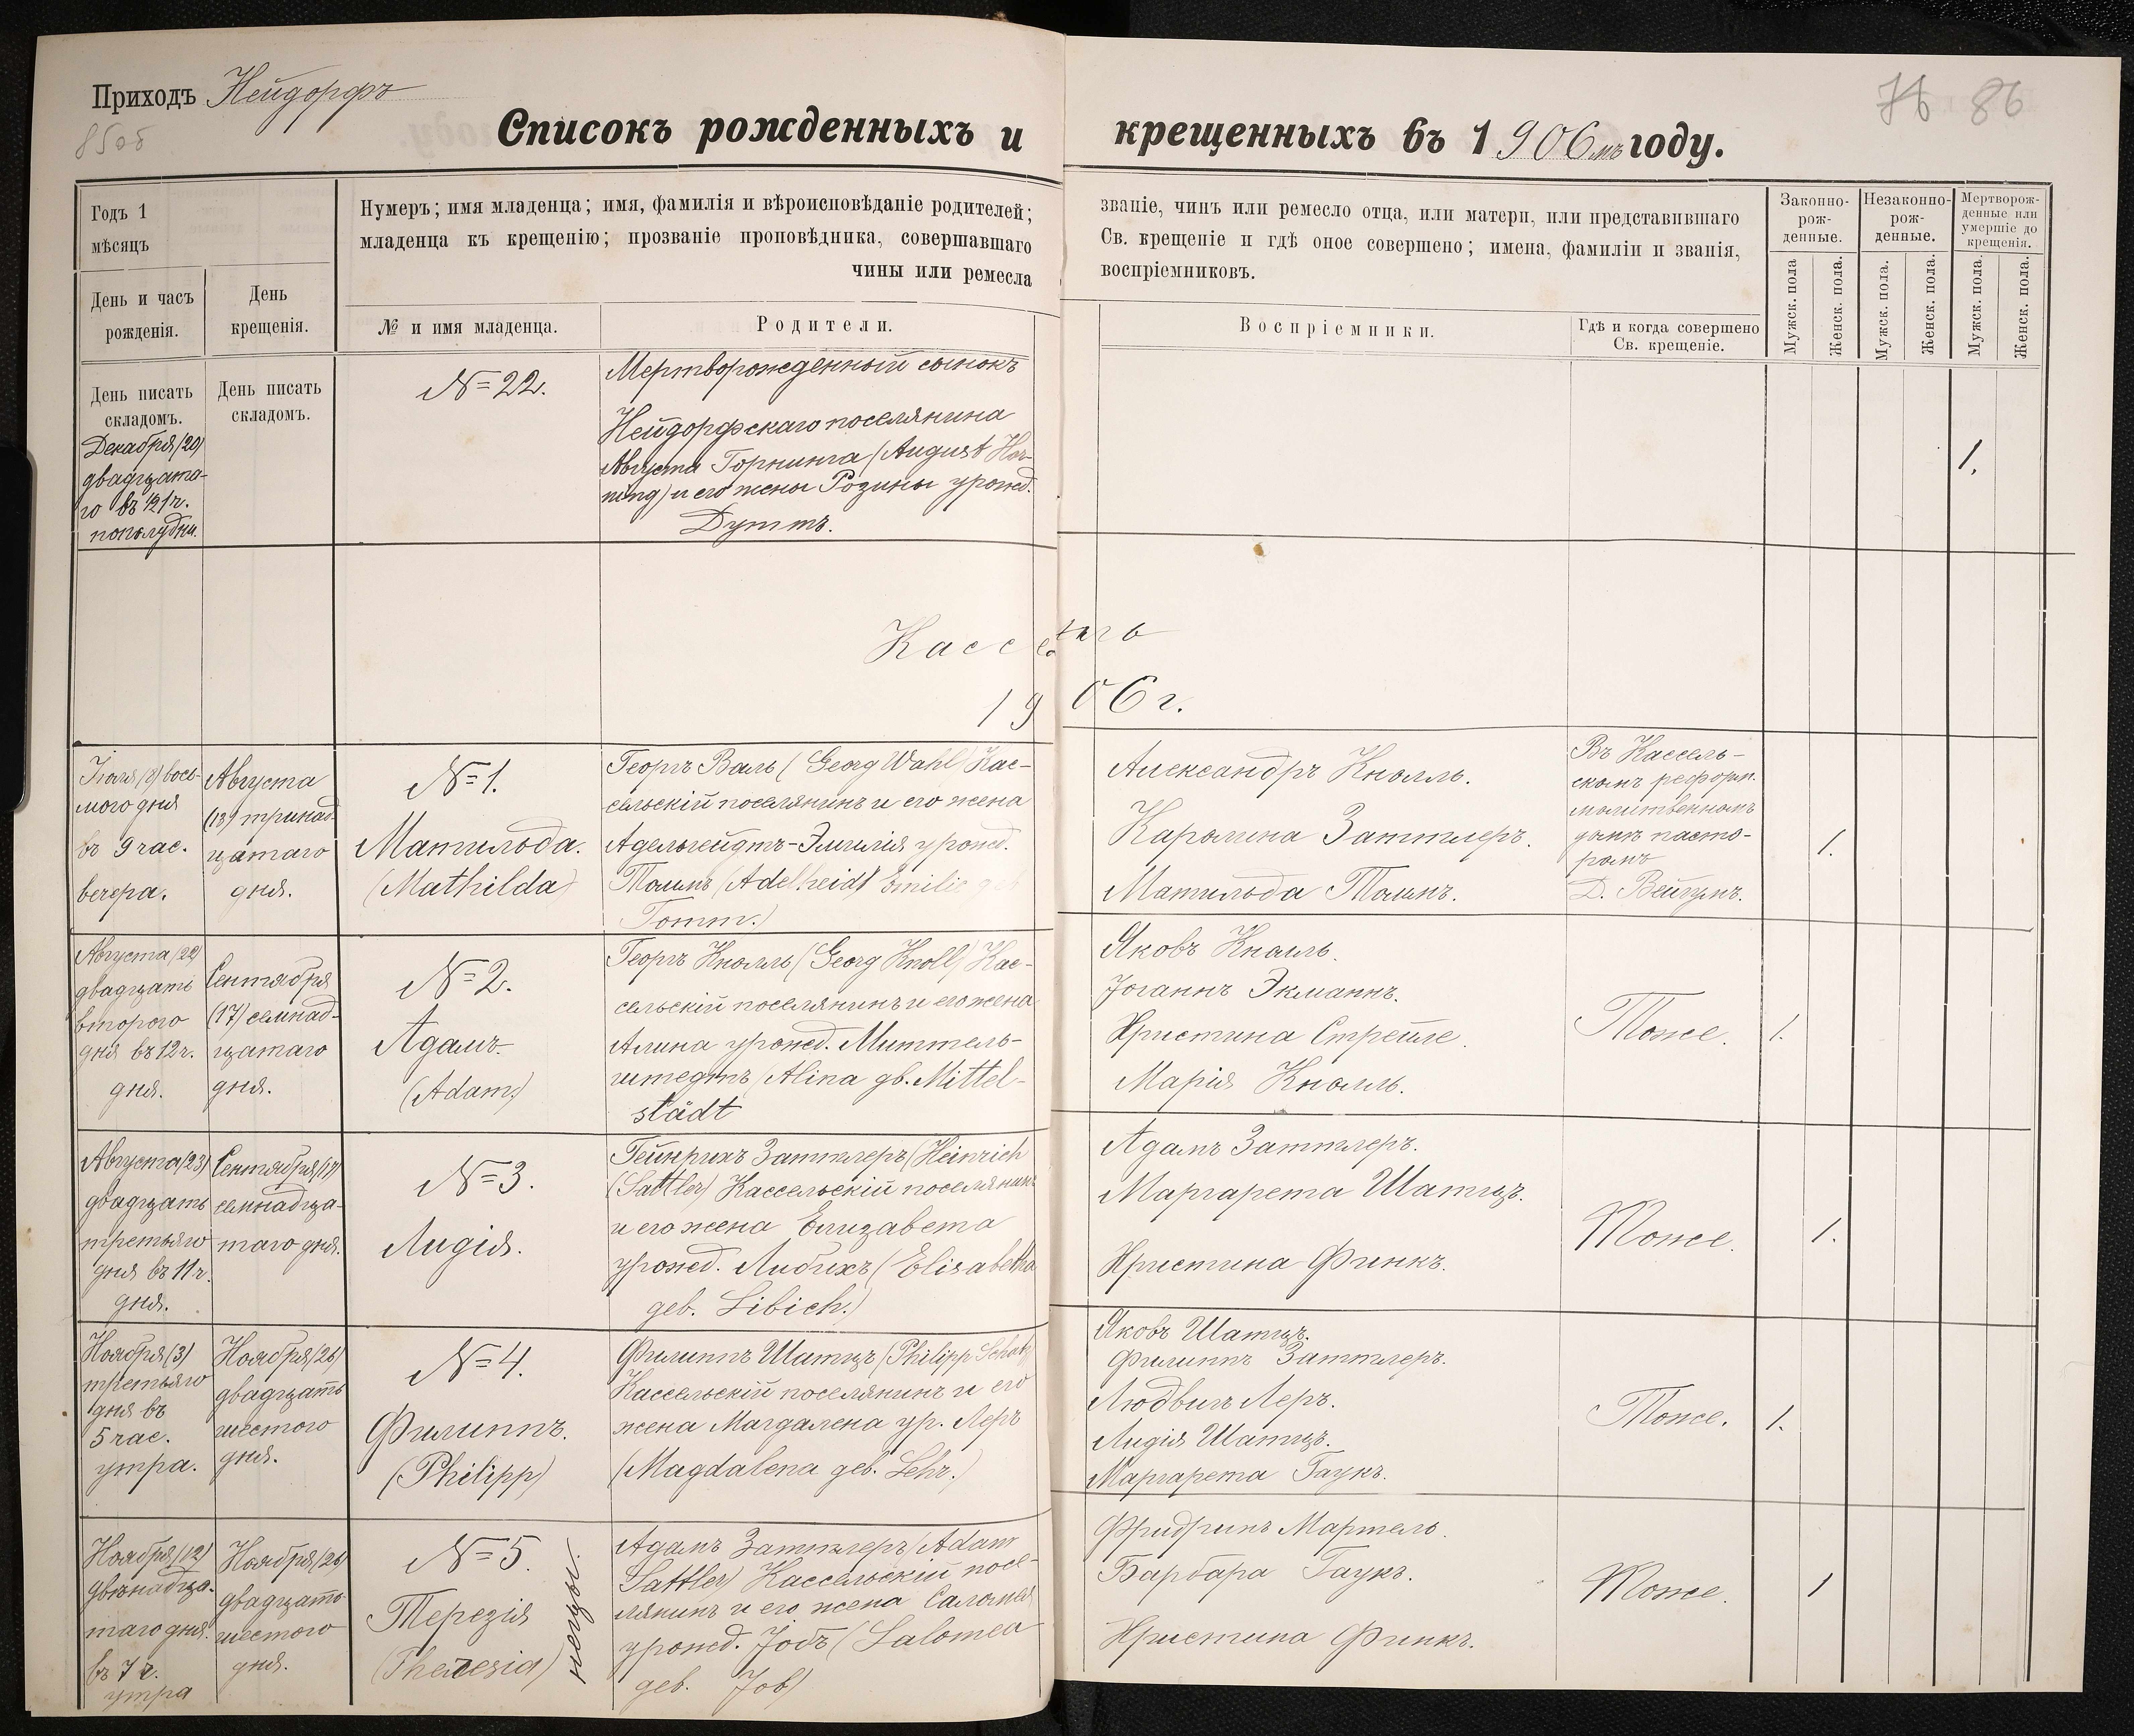 Приходъ Нейдорфъ
85об
76 86
Списокъ рожденныхъ и крещенныхъ въ 1906мъ году.
Годъ 1
мѣсяцъ
День и часъ
рожденія.
День
крещенія.
Нумеръ; имя младенца; имя, фамилія и вѣроисповѣданіе родителей; званіе, чинъ или ремесло отца, или матери, или представившаго
младенца къ крещенію; прозваніе проповѣдника, совершавшаго Св. крещеніе и гдѣ оное совершено; имена, фамиліи и званія,
чины или ремесла воспріемниковъ.
№ и имя младенца.
Родители.
Воспріемники.
Гдѣ и когда совершено
Св. крещеніе.
Законно-
рож-
денные.
Незаконно-
рож-
денные.
Мертворож-
денные или
умершіе до
крещенія.
Мужск. пола
Женск. пола.
Мужск. пола.
Женск. пола.
Мужск. пола.
Женск. пола.
День писать
складомъ.
День писать
складомъ.
Декабря (20)
двадцата-
го въ 12 1/2 ч.
пополудни.
№ 22.
Мертворожденный сынокъ
Нейдорфскаго поселянина
Августа Горнинга (August Hor-
ning) и его жены Розины урожд.
Дуттъ.
1.
Кассель
1906 г.
Іюля (8) вось-
мого дня
въ 9 час.
вечера.
Августа
(13) тринад-
цатаго
дня.
№ 1.
Матильда.
(Mathilda)
Георгъ Валь (Georg Wahl) Кас-
сельскій поселянинъ и его жена
Адельгейдтъ-Эмилія урожд.
Томмъ (Adelheidt Emilie geb
Tomm.)
Александръ Кнолль.
Каролина Заттлеръ.
Матильда Томмъ.
Въ Кассель-
скомъ реформ.
молитвенномъ
домѣ пасто-
ромъ
Д. Вейгумъ.
1.
Августа (22)
двадцать
второго
дня въ 12 ч.
дня.
Сентября
(17) семнад-
цатаго
дня.
№ 2.
Адамъ.
(Adam)
Георгъ Кнолль (Georg Knoll) Кас-
сельскій поселянинъ и его жена
Алина урожд. Миттель-
штедтъ (Alina gb. Mittel-
städt
Яковъ Кнолль.
Іоганнъ Экманнъ.
Христина Стрейле.
Марія Кнолль.
Тоже.
1.
Августа (23)
двадцать
третьяго
дня въ 11 ч.
дня.
Сентября (17)
семнадца-
таго дня.
№ 3.
Лидія.
Гейнрихъ Заттлеръ (Heinrich
(Sattler) Кассельскій поселянинъ
и его жена Елизавета
урожд. Либихъ (Elisabetha
geb. Libich.)
Адамъ Заттлеръ.
Маргарета Шатцъ.
Христина Финкъ.
Тоже.
1.
Ноября (3)
третьяго
дня въ
5 час.
утра.
Ноября (26)
двадцать
шестого
дня.
№ 4.
Филиппъ.
(Philipp)
Филиппъ Шатцъ (Philipp Schatz)
Кассельскій поселянинъ и его
жена Магдалена ур. Леръ
(Magdalena geb. Lehr.)
Яковъ Шатцъ.
Филиппъ Заттлеръ.
Людвигъ Леръ.
Лидія Шатцъ.
Маргарета Гаукъ.
Тоже.
1.
Ноября (12)
двѣнадца-
таго дня.
въ 7 ч.
утра
Ноября (26)
двадцать
шестого
дня.
№ 5.
Терезія
(Theresia)
Адамъ Заттлеръ (Adam
Sattler) Кассельскій посе-
лянинъ и его жена Саломея
урожд. Іобъ (Salomea
geb. Job)
Фридрихъ Мартель.
Барбара Гаукъ.
Христина Финкъ.
Тоже.
1